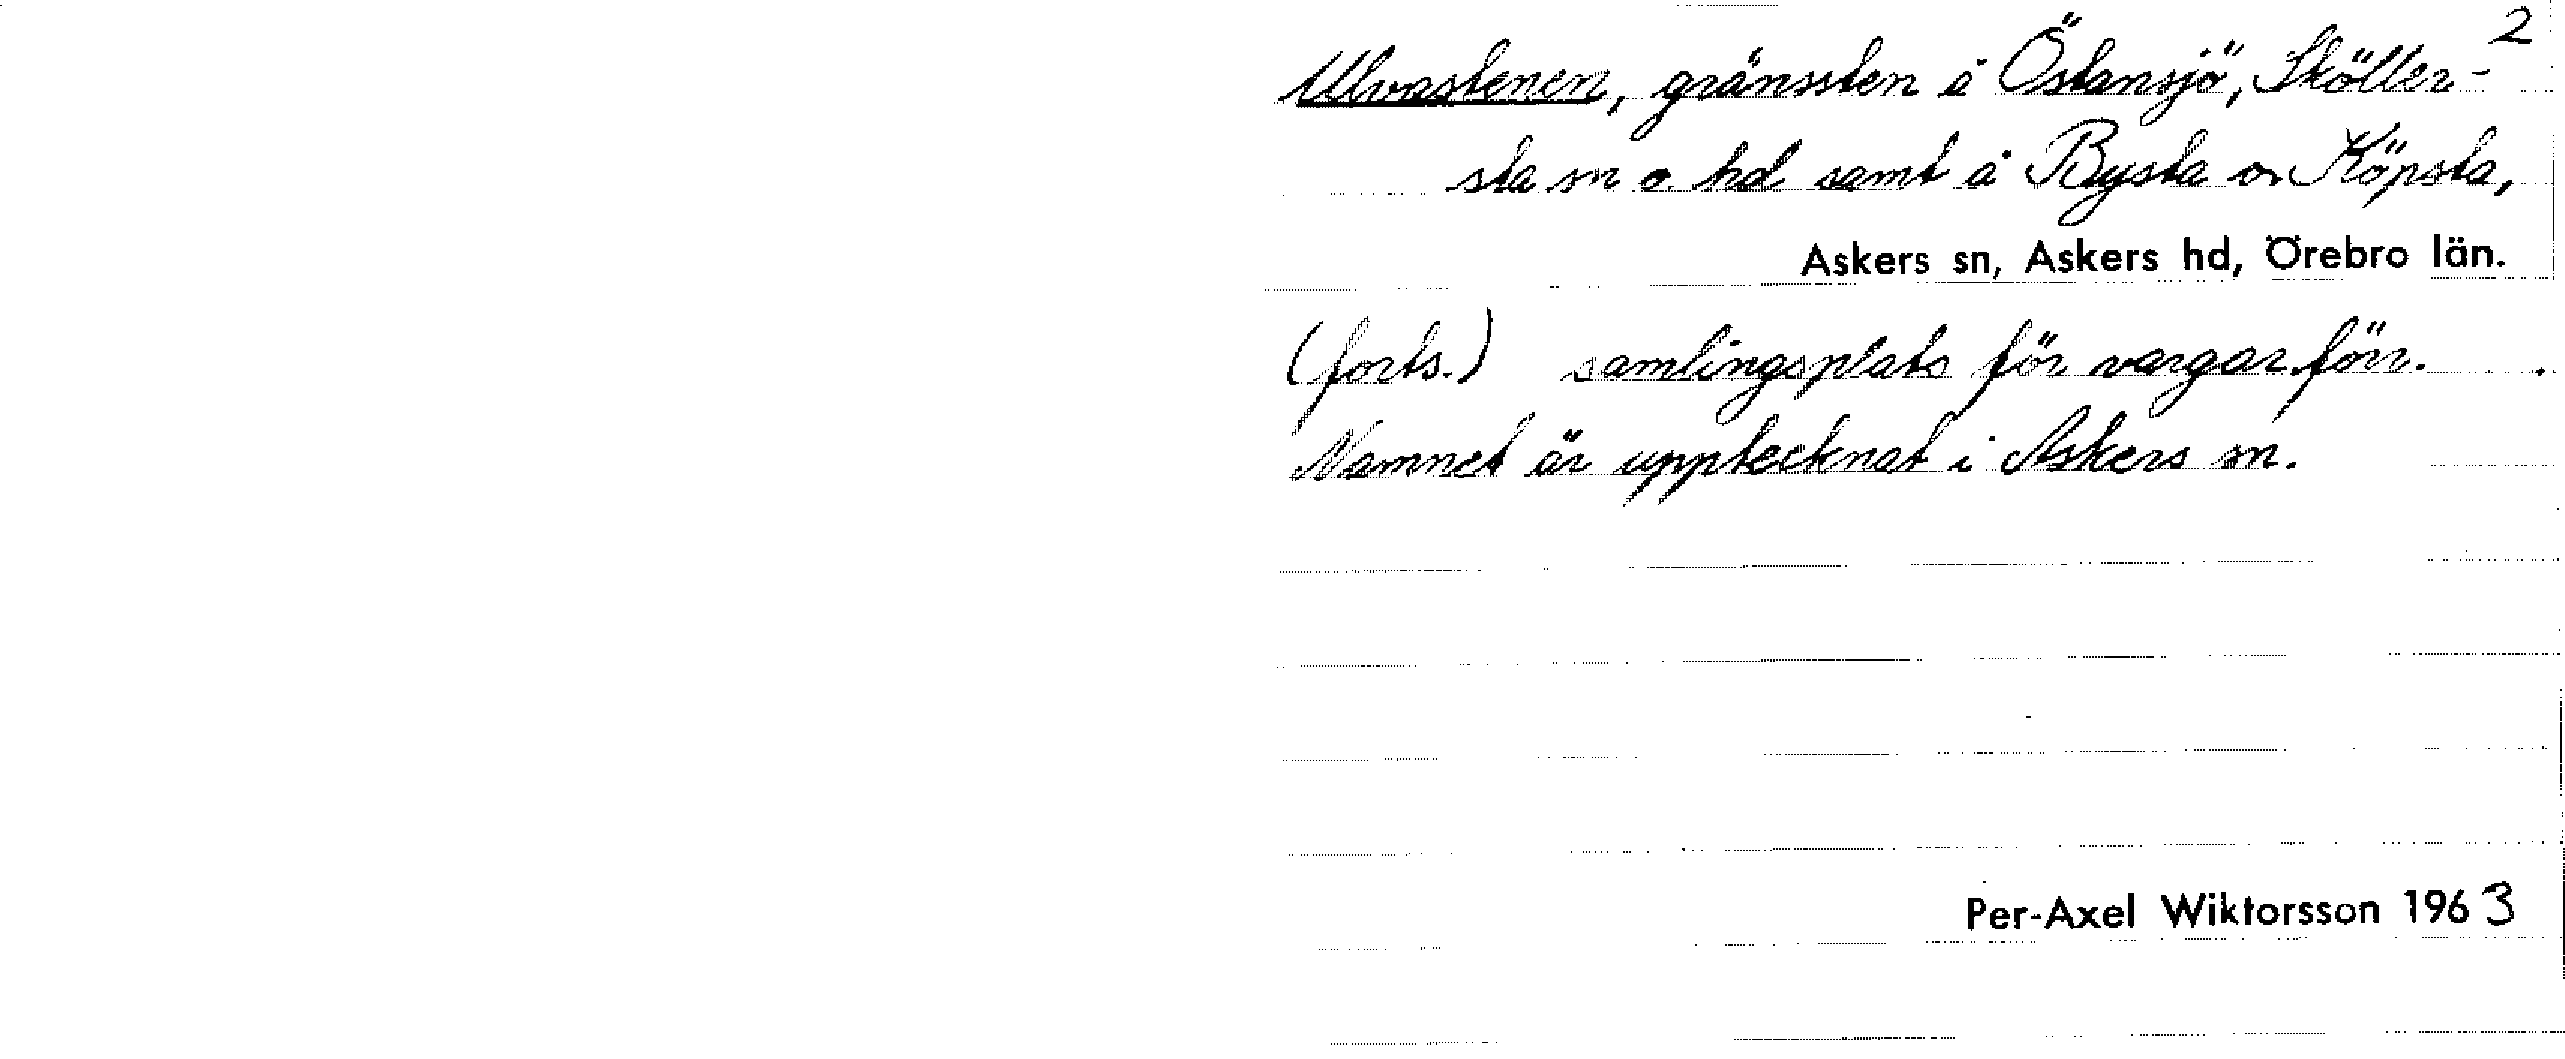 2
Ulvastenen, gränssten å Östansjö, Sköller-
sta sn o. hd samt å Bysta o. Köpsta,
Askers sn, Askers hd, Örebro län.
(forts.) samlingsplats för vargar förr.
Namnet är upptecknat i Askers sn.
Per-Axel Wiktorsson 1963